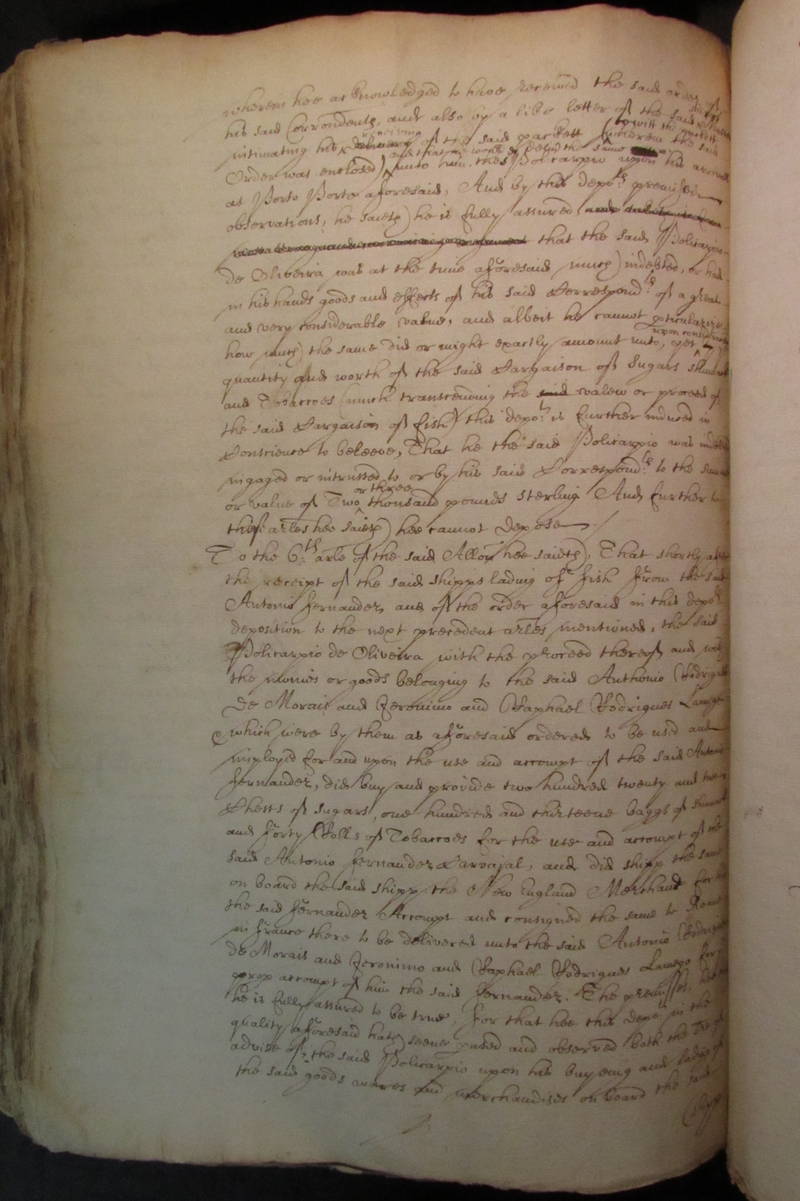 wherein hee acknowledged to have received the said order of
his said Correspondents, and also by a like letter of the said
intimating his receiving of the said packett (wherein the said
to witt the
Order was enclosed) unto him the Policarpio upon his arrivall
at Porto Porto aforesaid, And by this depots premised
observations, he saieth) he is fully assured
that the said Policarpio
de Oliveira was at the time aforesaid much indebted, or had
in his hands goods and effects of his said Correspondts of a great
and very considerable value, and albeit he cannot perticularize
how much the same did or might exactly amount unto, yet upon
quantity and worth of the said Cargaison of Sugars
and Tobaccoes (much transcending the said valew or proceed of
the said Cargaison of fish) this depot is further induced in
Conscience to beleeve, That he the said Policarpio was
ingaged or intrusted to or by his said Correspondts to the
or three
or value of Two thousand pounds sterling And further to
these arles hee saieth) hee cannot depose
To the 6th arle of the said Allon hee saieth), That shortly after
the receipt of the said shipps lading of fish from the said
Antonio Fernandez, and of the order aforesaid in this depots
deposition to the next precedent arles mentioned, the said
Policarpio de Oliveira with the proceed thereof and with
the monies or goods belonging to the said Anthonio Rodrigues
de Morais and Jeronimo and Raphael Rodrigues Lamego
which were by them as aforesaid ordered to be used and
imployed for and upon the use and accompt of the said Antonio
Fernandez, did buy and provide two hundred twenty and
Chests of sugars, one hundred and thirteene baggs of
and forty Rolls of Tobaccoes for the use and accompt of the
said Antonio Fernandez Carvajal, and did shipp the same
on board the said shipp the New England Merchant for
the said Fernandez Accompt and consigned the same to Roan
in France there to be delivered unto the said Antonio Rodrigues
de Morais and Jeronimo and Raphael Rodrigues Lamego for
accompt of him the said Fernandez. The premisses,
he is fully assured to be true, for that hee this depot in the
quality aforesaid hath seene and observed both the
advise of the said Policarpio upon his buyeing and lading of
the said goods wares and merchandises on board the said